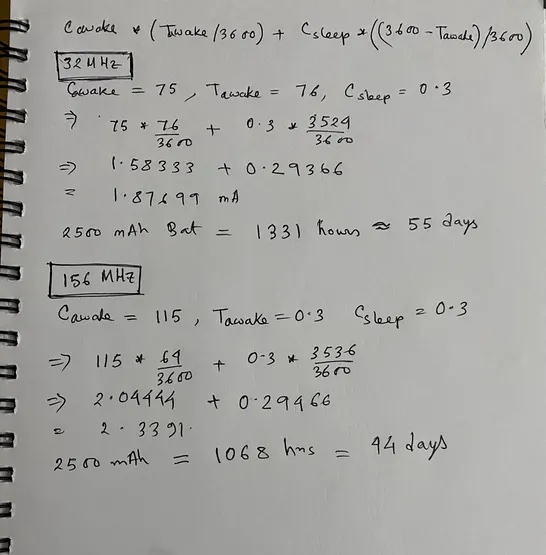 Cawake * (Tawake/3600) + Csleep * ((3600 - Tawake)/3600)
32 MHz
Cawake = 75 , Tawake = 76, Csleep = 0.3
⇒ 75 * 76/3600 + 0.3 * 3524/3600
⇒ 1.58333 + 0.29366
= 1.87699 mA
2500 mAh Bat = 1331 hours ≈ 55 days
156 MHZ
Cawake = 115 , Tawake = 0.3 Csleep = 0.3
⇒ 115 * 64/3600 + 0.3 * 3536/3600
⇒ 2.04444 + 0.29466
= 2.3391.
2500 mAh = 1068 hrs = 44 days